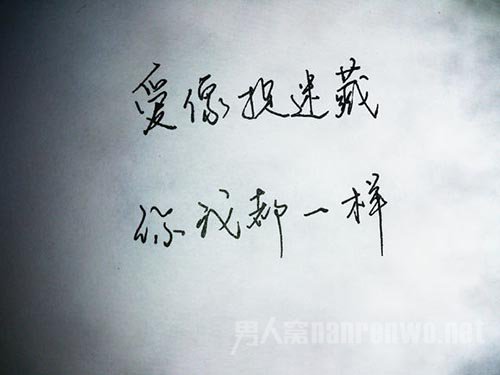 愛像捉迷藏
你我都一样
男人窝nanrenwo.net